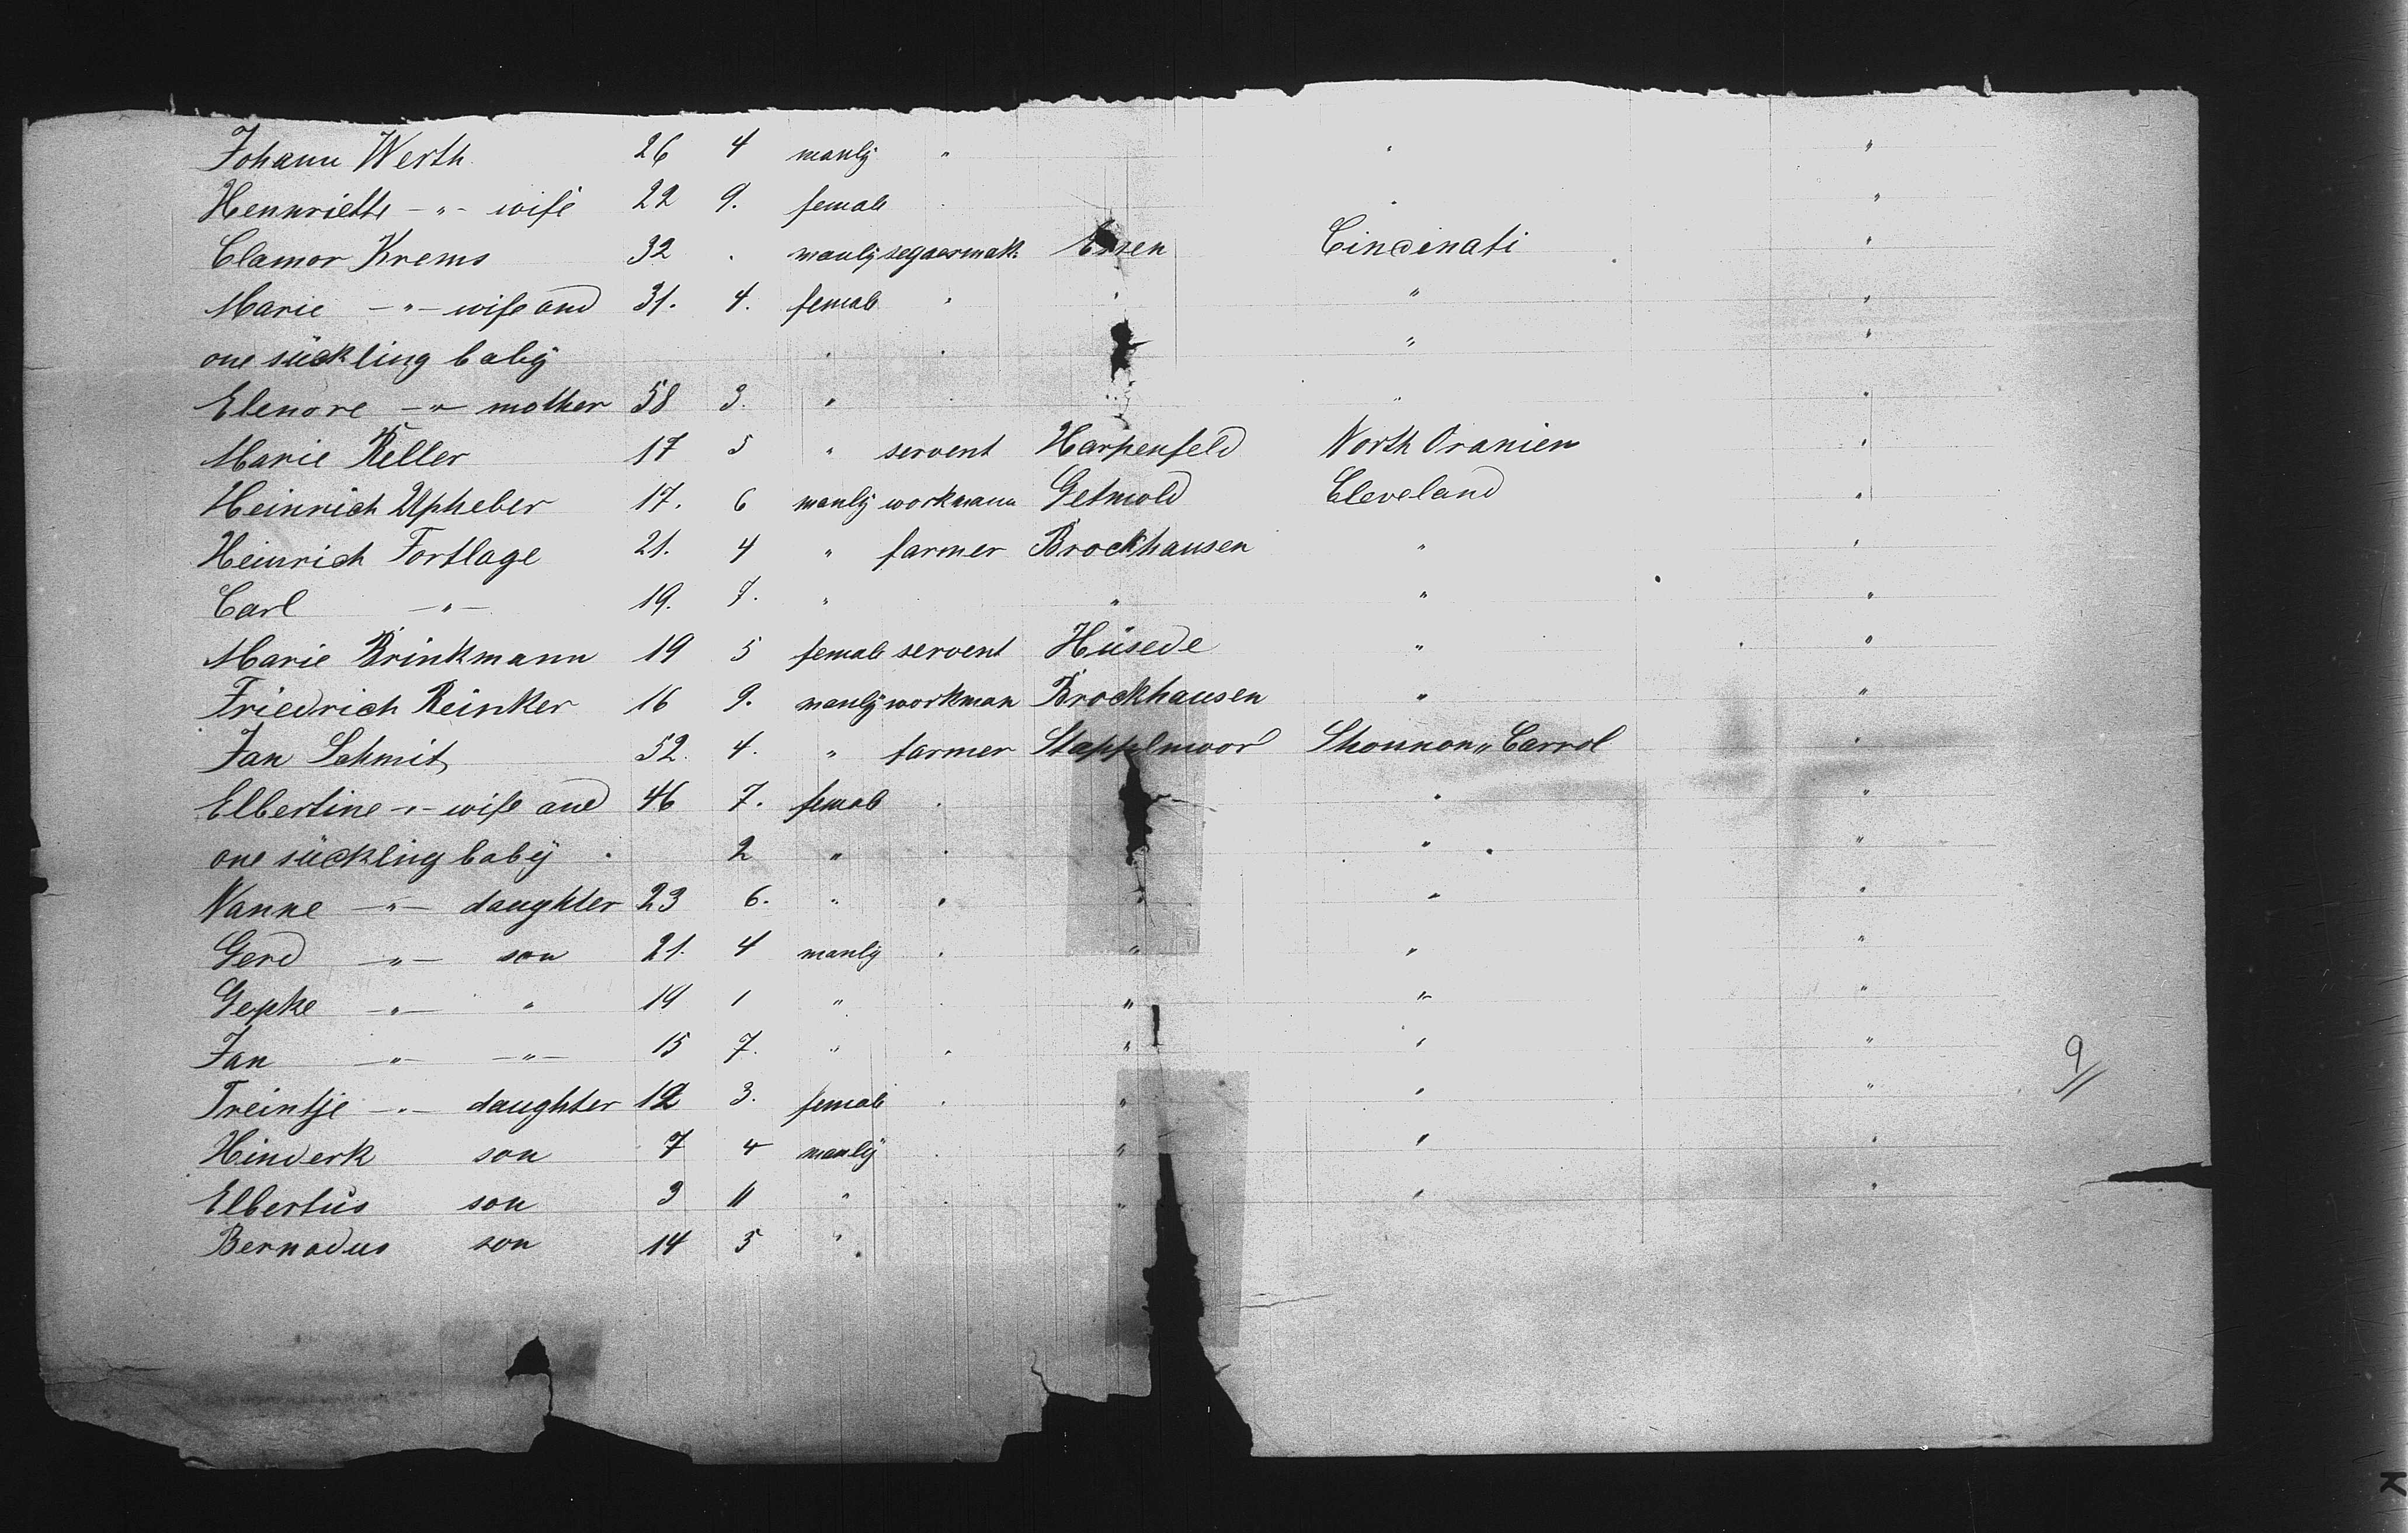 Johann Werth 26 4 manlÿ " " "
Hennriette - " - wife 22 9. female " " "
Clamor Krems 32 . manlÿ segaarmak. Essen Cincinati "
Marie - " - wife and 31. 4. female " " " "
one sückling babÿ " " " "
Elenore - " - mother 58 3. " " " "
Marie Keller 17 5 " servent Harpenfeld North Oranien "
Heinrich Upheber 17. 6 manlÿ workmann Getmold Cleveland "
Heinrich Fortlage 21. 4 " farmer Brockhausen " "
Carl - " - 19. 7. " " " "
Marie Brinkmann 19 5 female servent Hüsede " "
Friedrich Reinker 16 9. manlÿ workman Brockhausen " "
Jan Schmit 52. 4. " farmer Stappelmoor Shounon " Carrol "
Elbertine - " - wife and 46 7. female " " "
one sückling babÿ . 2 " " " "
Nanne - " - daughter 23 6. " " " " "
Gerd - " - son 21. 4 manlÿ " " " "
Gepke - " - " 19 1 " " " " "
Jan - " - - " - 15 7. " " " " "
Treintje - " - daughter 12 3. female " " " "
Hinderk son 7 4 manlÿ " " " "
Elbertus son 3 11 " " " " "
Bernadus son 14 5 " "
9
K